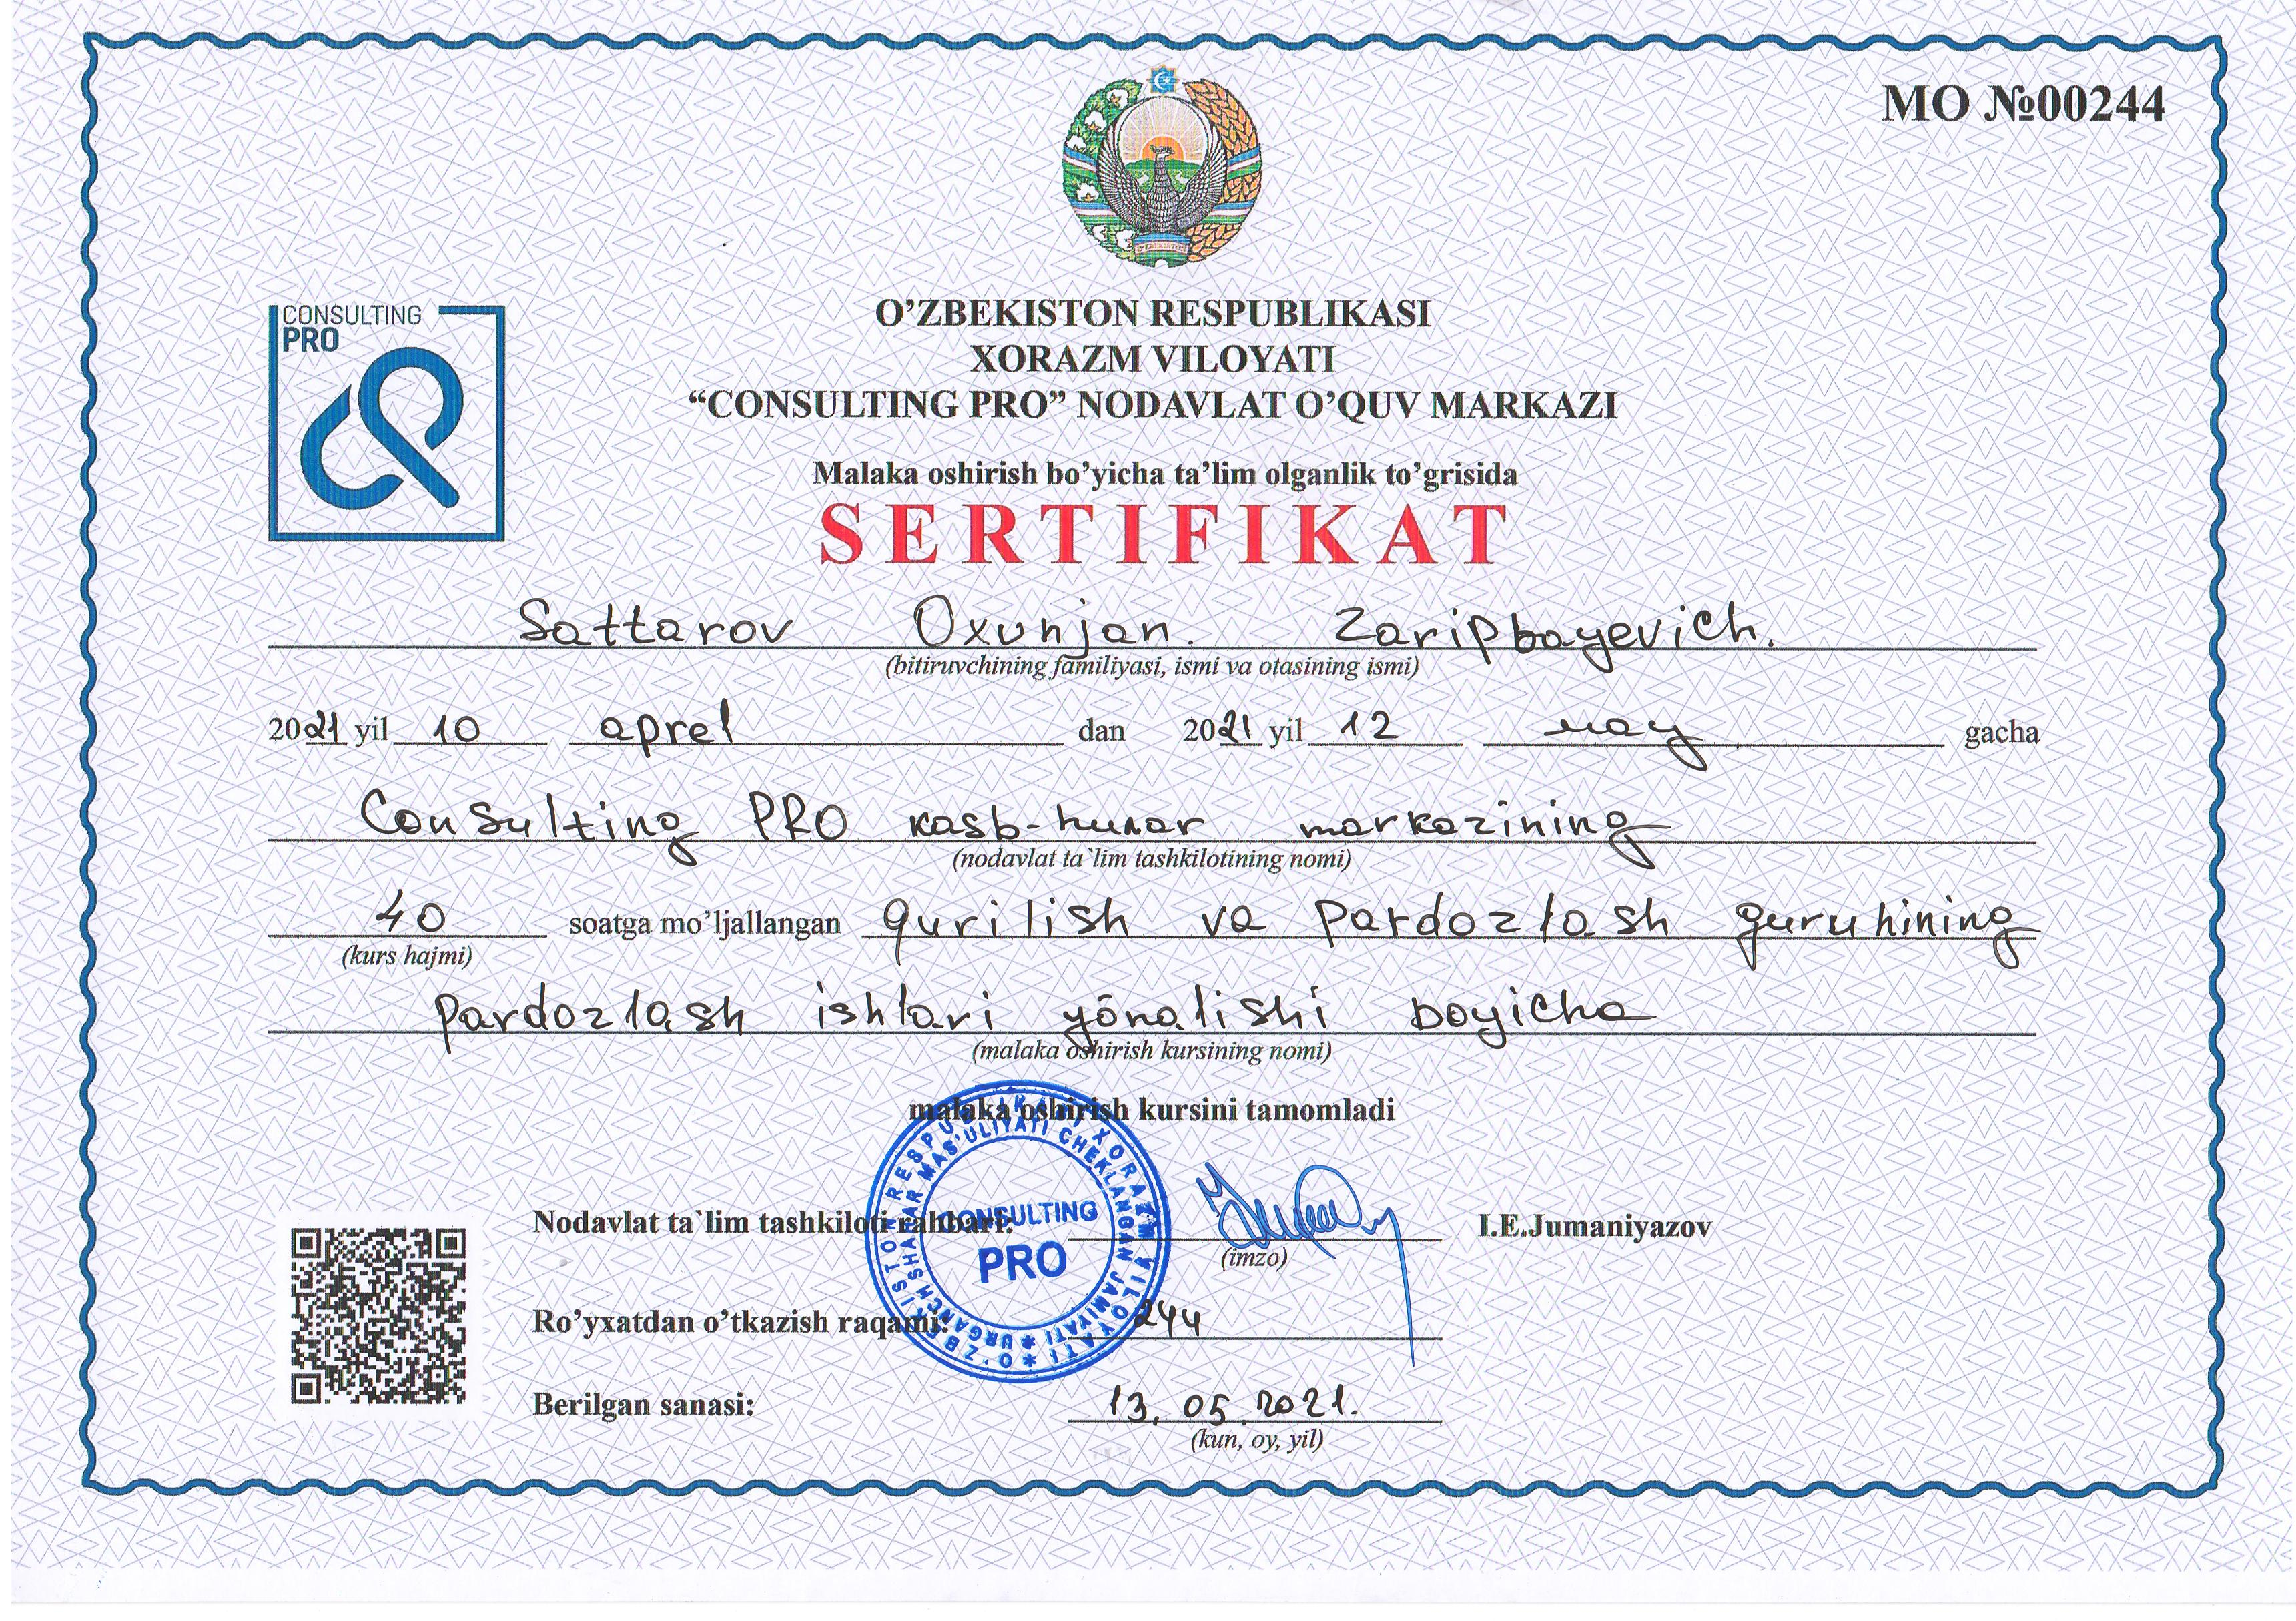 MO №00244
CONSULTING
PRO
O’ZBEKISTON RESPUBLIKASI
XORAZM VILOYATI
“CONSULTING PRO” NODAVLAT O’QUV MARKAZI
Malaka oshirish bo’yicha ta’lim olganlik to’grisida
SERTIFIKAT
Sattarov Oxunjan. Zaripbayevich.
(bitiruvchining familiyasi, ismi va otasining ismi)
2021 yil 10 aprel dan 2021 yil 12 may gacha
Consulting PRO kasb-hunar markazining
(nodavlat ta`lim tashkilotining nomi)
40 soatga mo’ljallangan qurilish va pardozlash guruhining
(kurs hajmi)
pardozlash ishlari yōnalishi boyicha
(malaka oshirish kursining nomi)
malaka oshirish kursini tamomladi
Nodavlat ta`lim tashkiloti rahbari: I.E.Jumaniyazov
(imzo)
Ro’yxatdan o’tkazish raqami: 244
Berilgan sanasi: 13.05.2021.
(kun, oy, yil)
O'ZBEKISTON RESPUBLIKASI XORAZM VILOYATI
URGANCH SHAHAR MAS'ULIYATI CHEKLANGAN JAMIYATI
CONSULTING
PRO